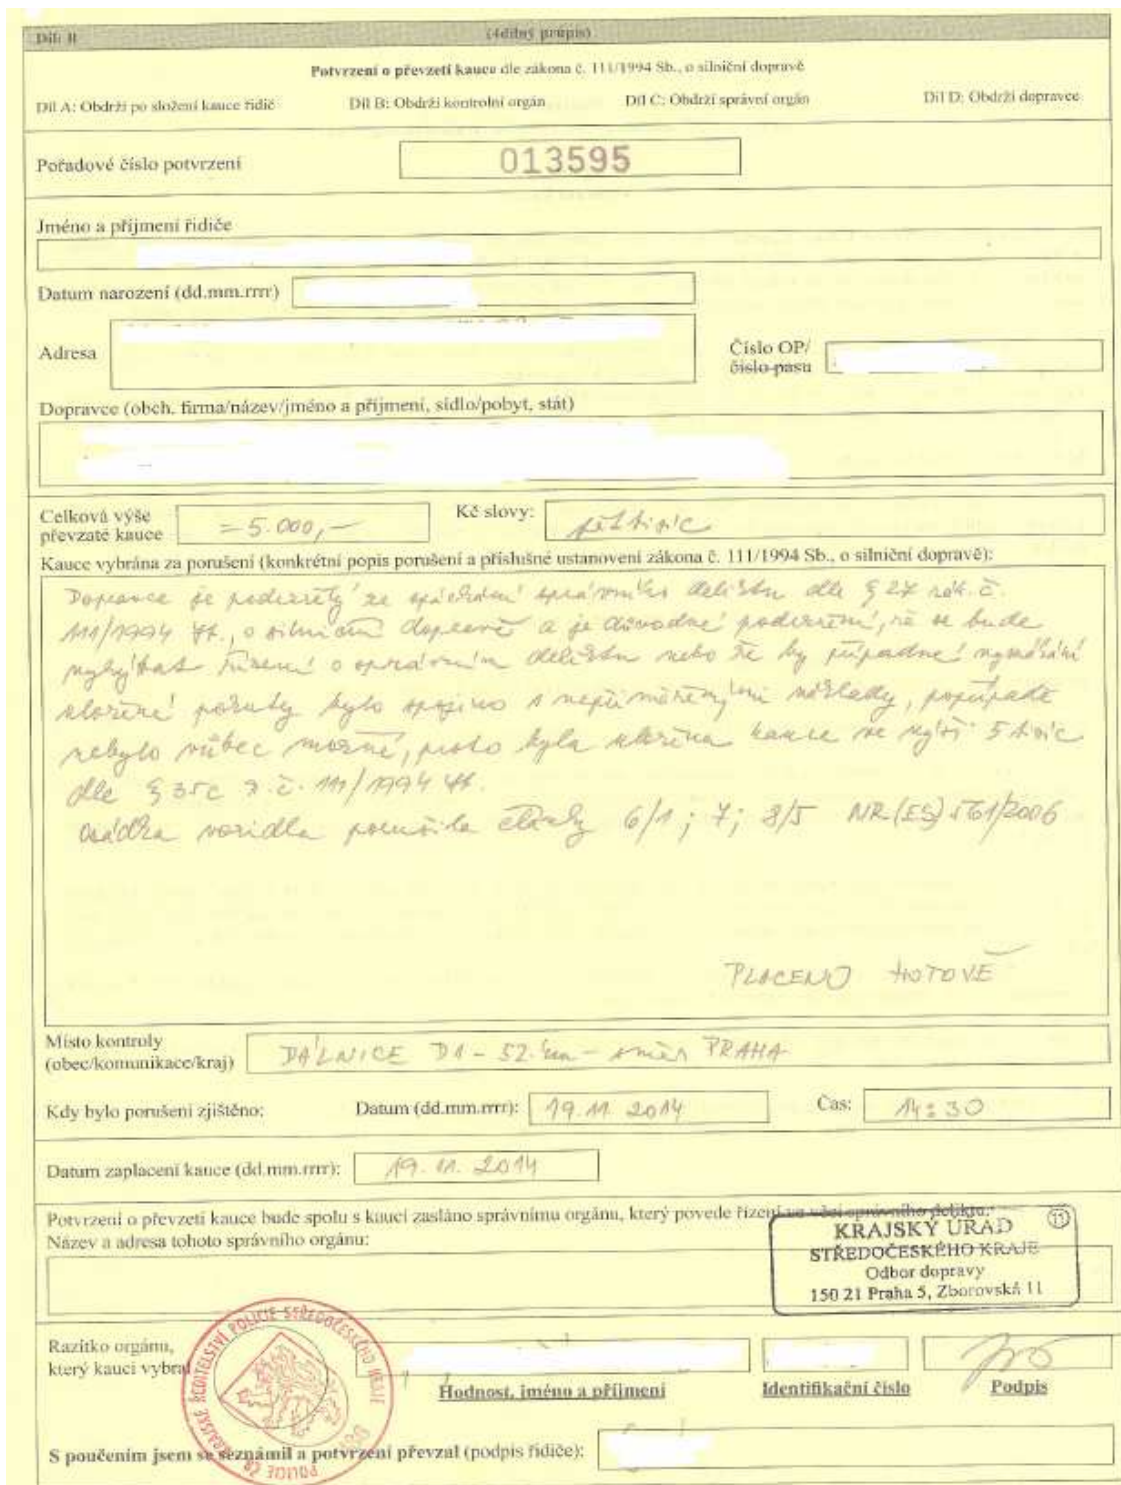 Díl: B (4dílný průpis)
Potvrzení o převzetí kauce dle zákona č. 111/1994 Sb., o silniční dopravě
Díl A: Obdrží po složení kauce řidič Díl B: Obdrží kontrolní orgán Díl C: Obdrží správní orgán Díl D: Obdrží dopravce
Pořadové číslo potvrzení 013595
Jméno a příjmení řidiče
Datum narození (dd.mm.rrrr)
Adresa
Číslo OP/
číslo pasu
Dopravce (obch. firma/název/jméno a příjmení, sídlo/pobyt, stát)
Celková výše
převzaté kauce =5.000,- Kč slovy: pěttisíc
Kauce vybrána za porušení (konkrétní popis porušení a příslušné ustanovení zákona č. 111/1994 Sb., o silniční dopravě):
Dopravce je podezřelý ze spáchání správního deliktu dle § 27 zák. č.
111/1994 Sb., o silniční dopravě a je důvodné podezření, že se bude
vyhýbat řízení o správním deliktu nebo že by případné vymáhání
uložené pokuty bylo spojeno s nepřiměřenými náklady, popřípadě
nebylo vůbec možné, proto byla uložena kauce ve výši 5 tisíc
dle § 35c z.č. 111/1994 Sb.
Osádka vozidla porušila články 6/1; 7; 8/5 NR(ES) 561/2006
PLACENO HOTOVĚ
Místo kontroly
(obec/komunikace/kraj) DÁLNICE D1 - 52. km - směr PRAHA
Kdy bylo porušení zjištěno: Datum (dd.mm.rrrr): 19.11.2014 Čas: 14:30
Datum zaplacení kauce (dd.mm.rrrr): 19.11.2014
Potvrzení o převzetí kauce bude spolu s kaucí zasláno správnímu orgánu, který povede řízení ve věci správního deliktu.
Název a adresa tohoto správního orgánu:
KRAJSKÝ ÚŘAD 11
STŘEDOČESKÉHO KRAJE
Odbor dopravy
150 21 Praha 5, Zborovská 11
Razítko orgánu,
který kauci vybral
Hodnost, jméno a příjmení Identifikační číslo Podpis
KRAJSKÉ ŘEDITELSTVÍ POLICIE STŘEDOČESKÉHO KRAJE
POLICIE ČR
S poučením jsem se seznámil a potvrzení převzal (podpis řidiče):